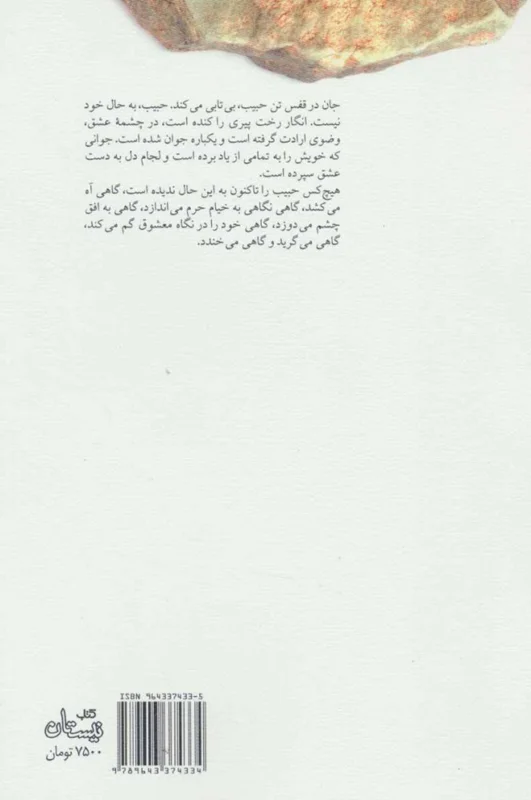 جان در قفس تن حبیب، بی‌تابی می‌کند. حبیب، به حال خود
نیست. انگار رخت پیری را کنده است، در چشمهٔ عشق،
وضوی ارادت گرفته است و یکباره جوان شده است. جوانی
که خویش را به تمامی از یاد برده است و لجام دل به دست
عشق سپرده است.
هیچ‌کس حبیب را تاکنون به این حال ندیده است، گاهی آه
می‌کشد، گاهی نگاهی به خیام حرم می‌اندازد، گاهی به افق
چشم می‌دوزد، گاهی خود را در نگاه معشوق گم می‌کند،
گاهی می‌گرید و گاهی می‌خندد.
ISBN 964337433-5
کتاب
نیستان
۷۵۰۰ تومان
9 789643 374334